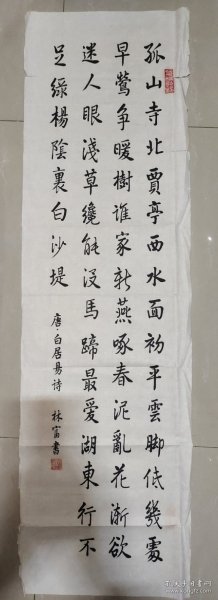 孤山寺北賈亭西水面初平雲脚低幾處
早鶯争暖樹誰家新燕啄春泥亂花漸欲
迷人眼淺草纔能没馬蹄最爱湖東行不
足綠楊陰裏白沙堤
唐·白居易诗 林富書